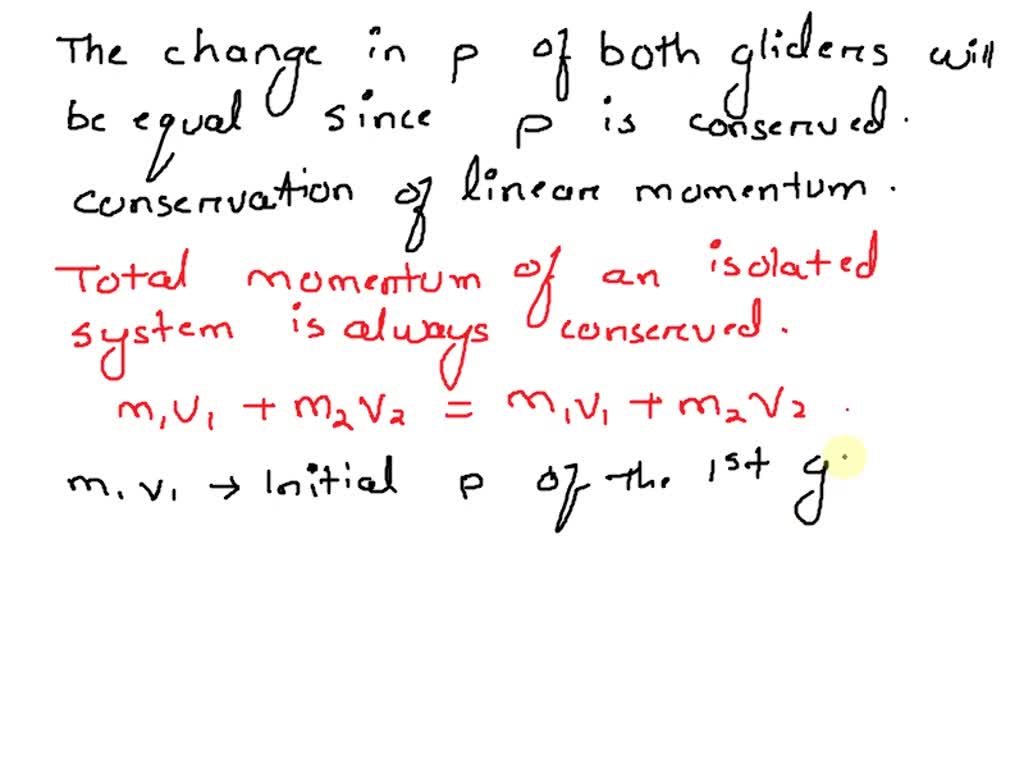 The change in p of both gliders will
be equal since p is conserved.
conservation of linear momentum.
Total momentum of an isolated
system is always conserved.
m₁v₁ + m₂v₂ = m₁v₁ + m₂v₂.
m₁v₁ → Initial p of the 1st g